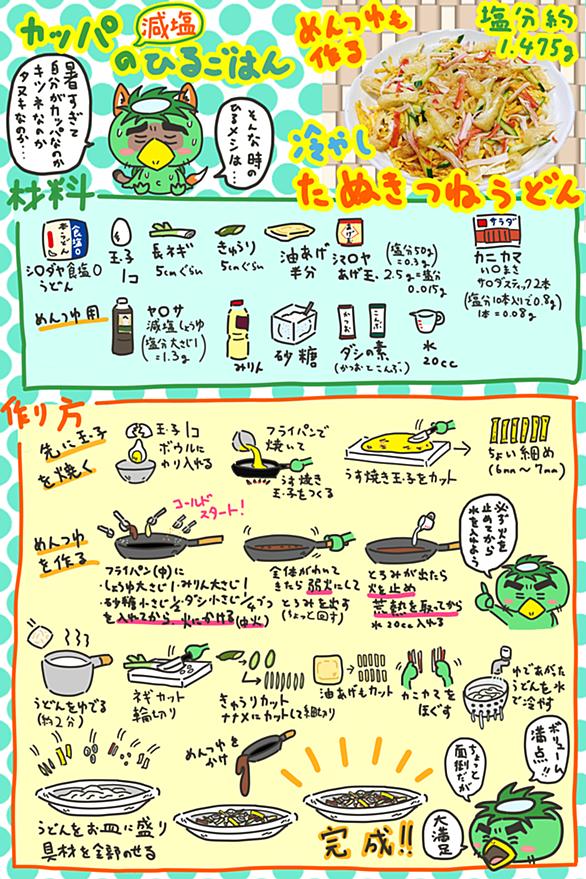 カッパの減塩ひるごはん
めんつゆも
作る
塩分約
1.475g
暑すぎて
自分がカッパなのか
キツネなのか
タヌキなのか…
そんな時の
ひるメシは…
冷やし
たぬきつねうどん
材料
食塩0
うどん
シロダヤ食塩0
うどん
玉子
1コ
長ネギ
5cmぐらい
きゅうり
5cmぐらい
油あげ
半分
シマロヤ
あげ玉、
(塩分50g)
=0.3g
2.5g=塩分
0.015g
サラダ
カニカマ
い〇まさ
サロダスティック2本
(塩分10本入りで0.8g)
1本=0.08g
めんつゆ用
ヤロサ
減塩しょうゆ
(塩分大さじ1
=1.3g)
みりん
砂糖
かつお
こんぶ
ダシの素
(かつおとこんぶ)
水
20cc
作り方
先に玉子
を焼く
玉子1コ
ボウルに
わり入れる
フライパンで
焼いて
うす焼き
玉子をつくる
うす焼き玉子をカット
ちょい細め
(6mm〜7mm)
めんつゆ
を作る
コールド
スタート!
フライパン(中)に
・しょうゆ大さじ1・みりん大さじ1
・砂糖小さじ1/2・ダシ小さじ1/4づつ
を入れてから、火にかける(中火)
全体がわいて
きたら弱火にして
とろみを出す
(ちょっと回す)
とろみが出たら
火を止め
荒熱を取ってから
水20cc入れる
必ず火を
止めてから
水を入れよう
うどんをゆでる
(約2分)
ネギカット
輪切り
きゅうりカット
ナナメにカットして細切り
油あげもカット
カニカマを
ほぐす
ゆであがった
うどんを水
で冷やす
うどんをお皿に盛り
具材を全部のせる
めんつゆを
かけ
完成!!
ボリューム
満点!!
ちょっと
面倒だが
大満足